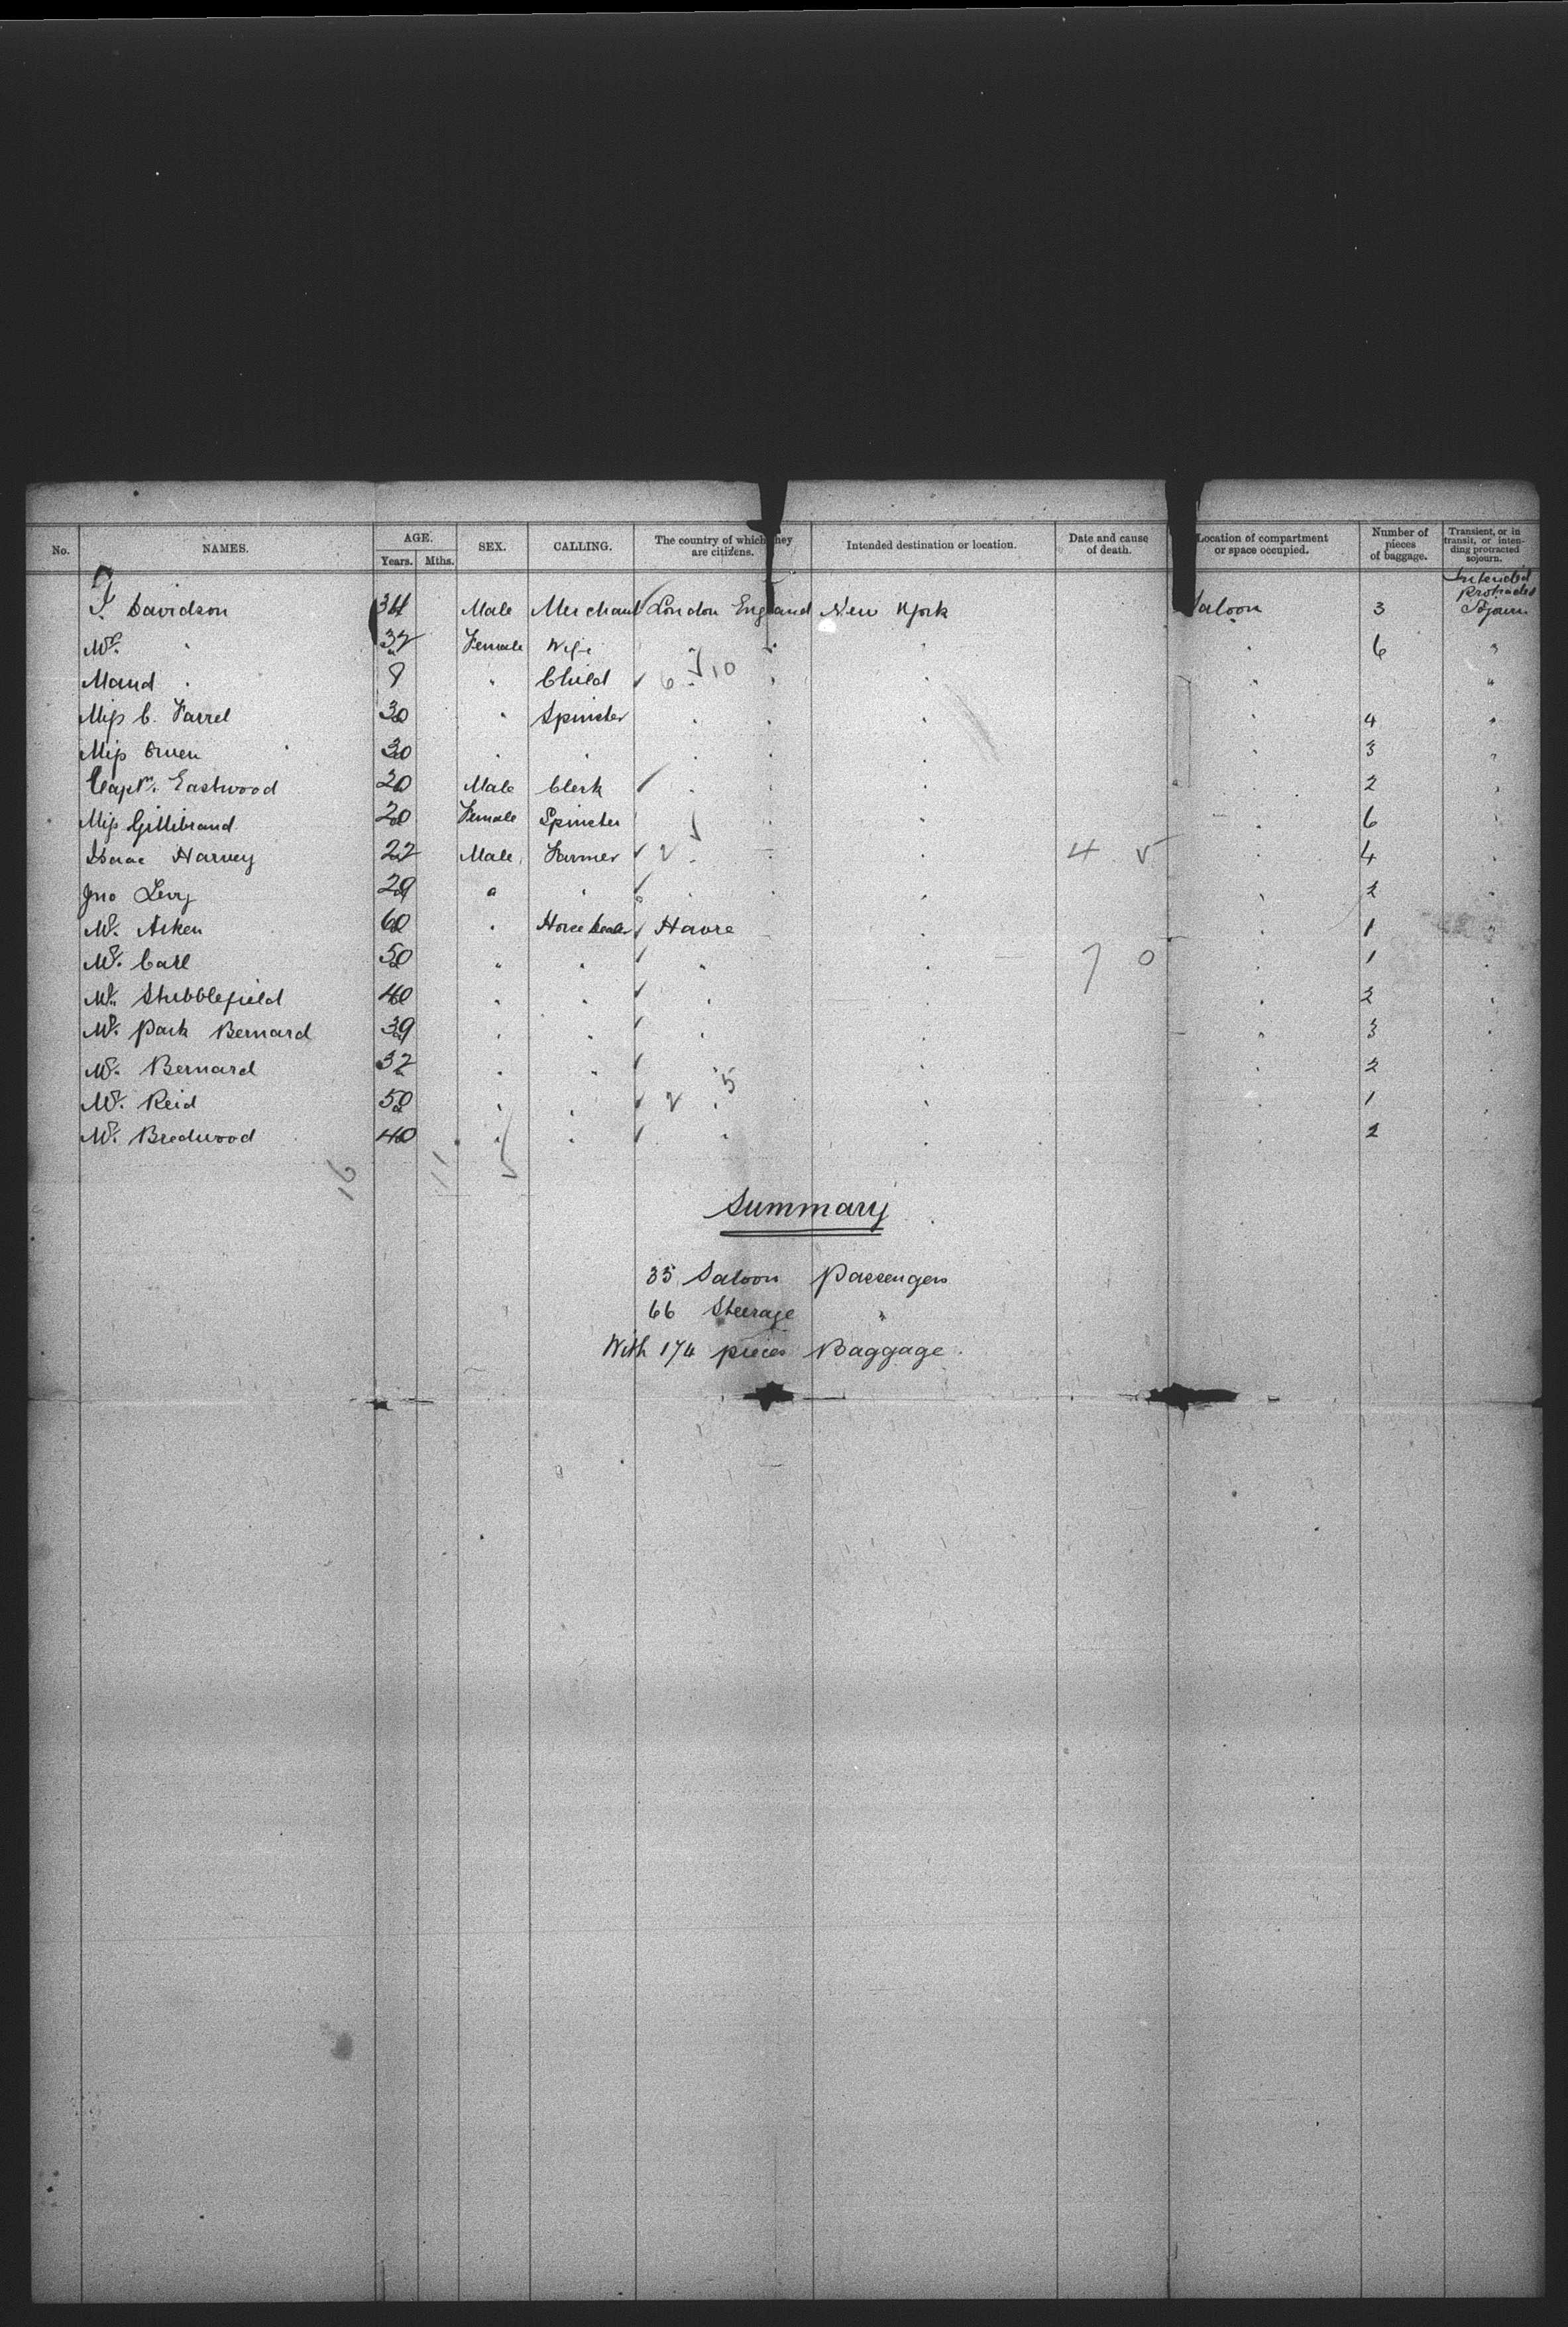 No. NAMES. AGE. Years. Mths. SEX. CALLING. The country of which they are citizens. Intended destination or location. Date and cause of death. Location of compartment or space occupied. Number of pieces of baggage. Transient, or in transit, or intending protracted sojourn.
Davidson 34 Male Merchant London England New York Saloon 3 Intended Protracted Sojourn
" 37 Female Wife " " " 6 "
Maud " 8 " Child 6 10 " " " "
Miss C. Farrel 30 " Spinster " " " 4 "
Miss Owen 30 " " " " " 3 "
Capt. Eastwood 20 Male Clerk " " " 2 "
Miss Gillibrand 20 Female Spinster " " " 6 "
Isaac Harvey 22 Male Farmer " " 4 5 " 4 "
Jno Levy 29 " " " " " 2 "
Mr. Aiken 60 " Horse Dealer Havre " " 1 "
Mr. Carl 50 " " " " 7 0 " 1 "
Mr. Stubblefield 40 " " " " " 2 "
Mr. Park Bernard 39 " " " " " 3 "
Mr. Bernard 32 " " " " " 2 "
Mr. Reid 50 " " " 5 " " 1 "
Mr. Bredwood 40 " " " " " 2 "
16 11 5
Summary
35 Saloon Passengers
66 Steerage "
With 174 pieces Baggage.